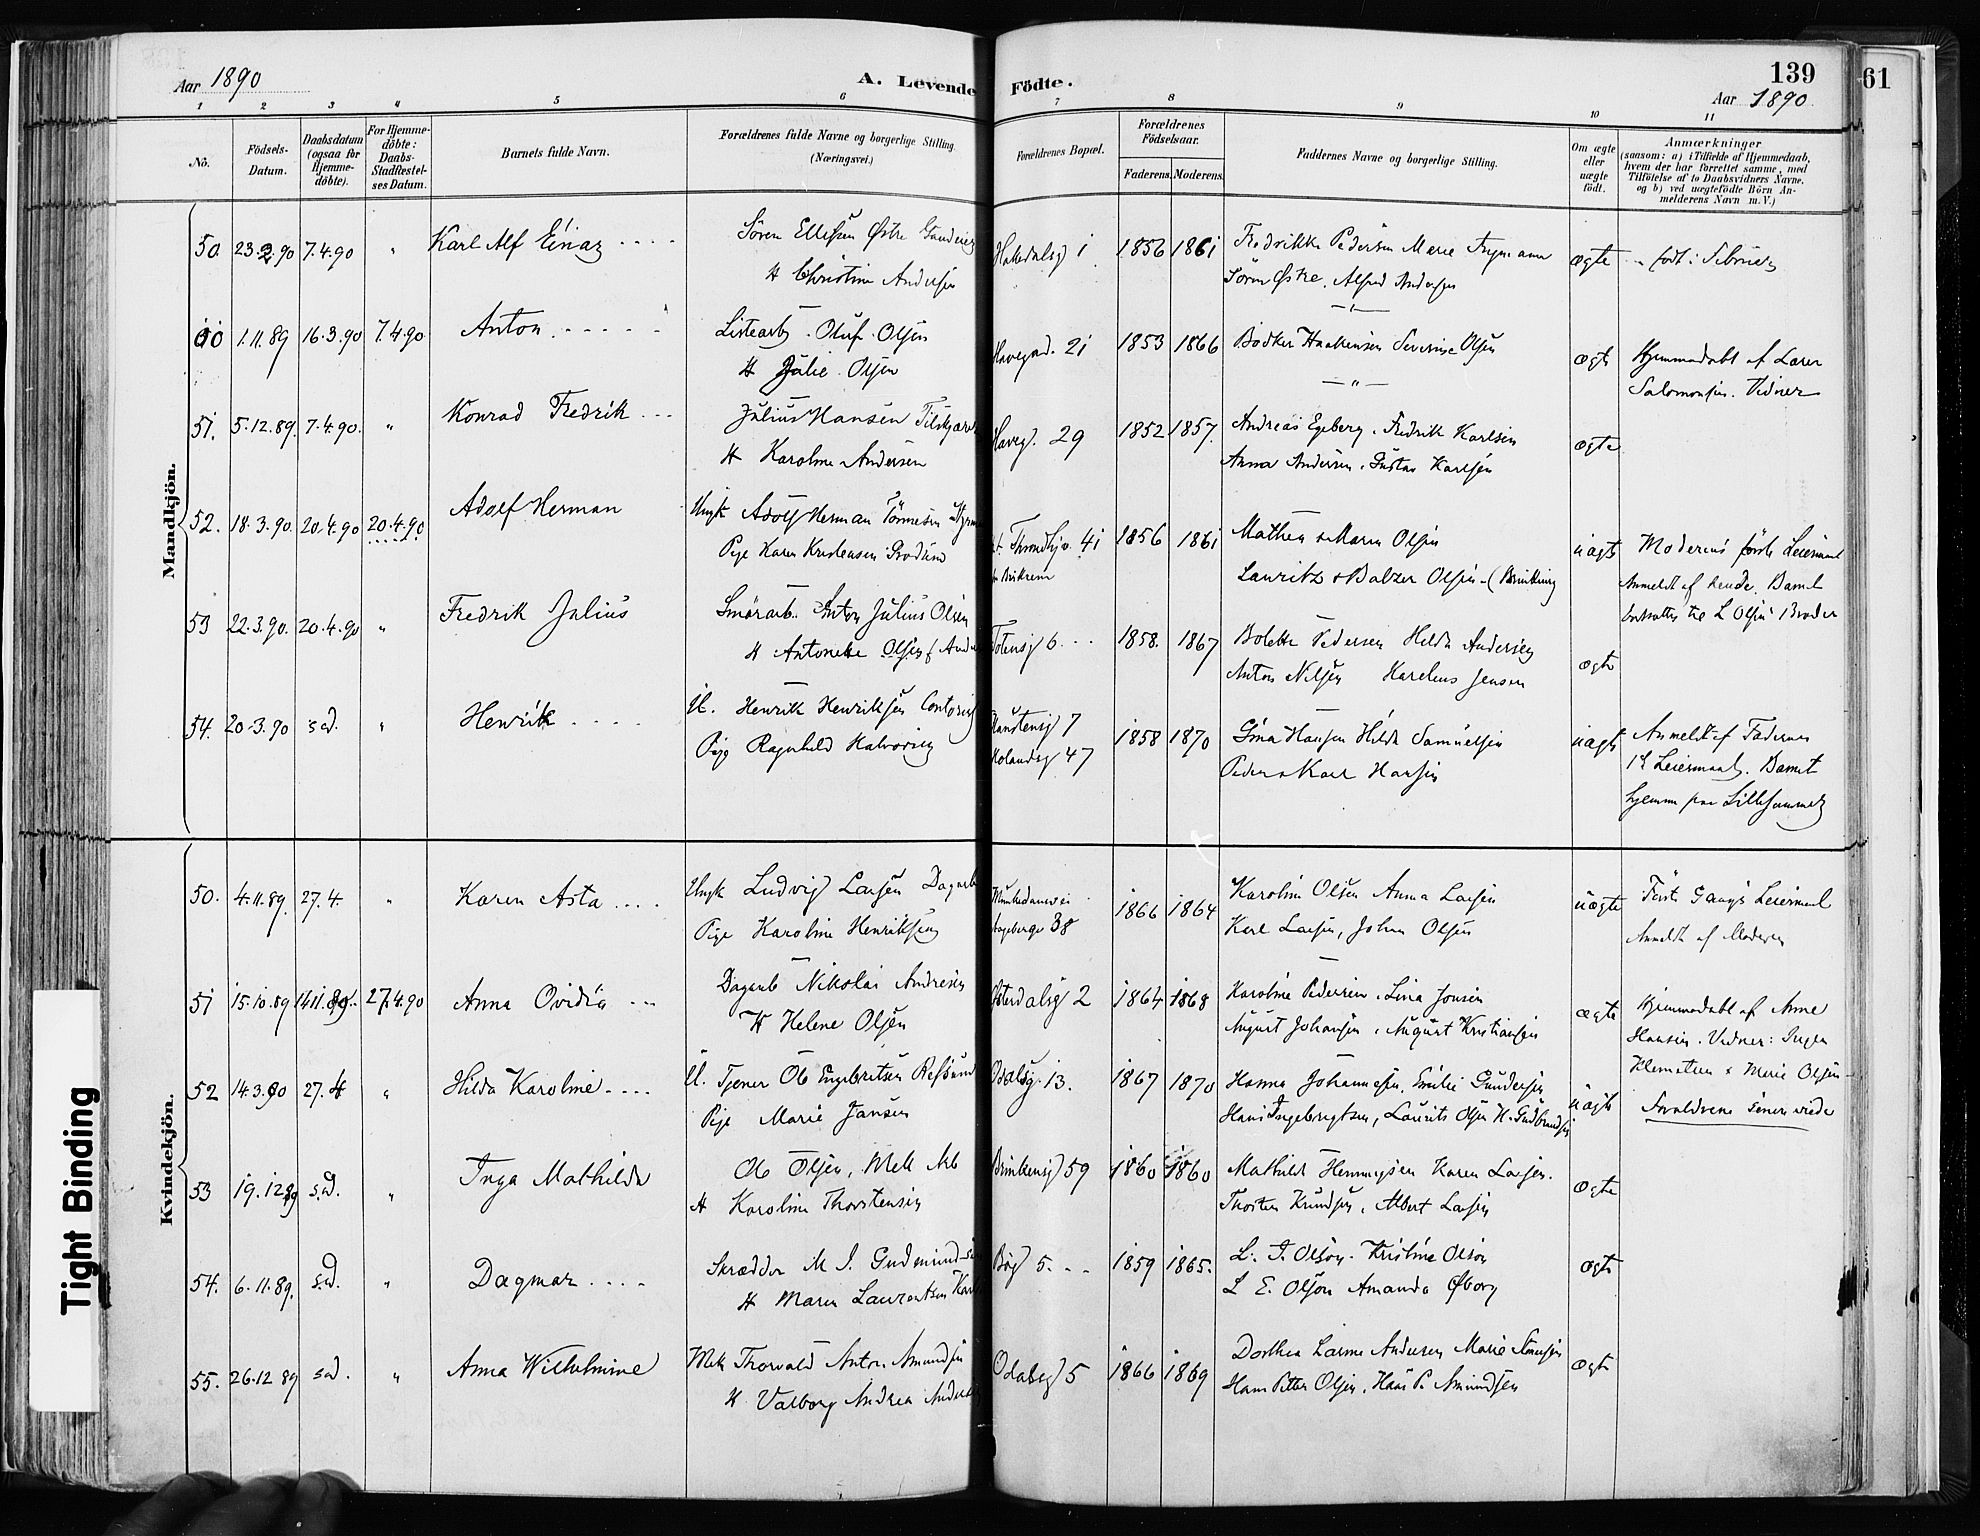 Aar 1890
A. Levende Födte.
139
61
Aar 1890.
1 2 3 4 5 6 7 8 9 10 11
No.
Födsels-Datum.
Daabsdatum (ogsaa for Hjemme-döbte).
For Hjemme-döbte: Daabs-Stadfæstel-ses Datum.
Barnets fulde Navn.
Forældrenes fulde Navne og borgerlige Stilling.
(Næringsvei.)
Forældrenes Bopæl.
Forældrenes Födselsaar.
Faderens. Moderens.
Faddernes Navne og borgerlige Stilling.
Om ægte eller uægte födt.
Anmærkninger
(saasom: a) i Tilfælde af Hjemmedaab,
hvem der har forrettet samme, med
Tilföielse af to Daabsvidners Navne,
og b) ved uægtefödte Börn An-
melderens Navn m. V.)
Mandkjön.
50. 23.2.90 7.4.90 " Karl Alf Einar
Sören Ellefsen Østre
H Christine Andersen
1856 1861
Fredrikke Pedersen Marie
Sören Østre. Alfred Andersen
ægte
födt i Februar
1.11.89 16.3.90 7.4.90 Anton
Oluf Olsen
H Julie Olsen
Havegad. 21 1853 1866
Bödker Haakensen Severine Olsen
ægte
Hjemmedöbt af Lærer
Salomonsen. Vidner
51. 5.12.89. 7.4.90. " Konrad Fredrik
Julius Hansen
H Karoline Andersen
Haveg. 29 1852 1857.
Andreas Egeberg. Fredrik Karlsen
Anna Andersen. Gustav Karlsen
ægte
52. 18.3.90. 20.4.90 20.4.90 Adolf Herman
Ungk Adolf Herman Tönnesen
Pige Karen Kristensen
41
1856 1861
Mathea & Maren Olsen
Lauritz & Balzer Olsen
uægte
Moderens förste Leiermaal
Anmeldt af hende. Barnet
bortsattes til L Olsen Broder
53 22.3.90. 20.4.90 " Fredrik Julius
Anton Julius Olsen
H Antonette Olsen
Totensg 6 1858. 1867
Bolette Pedersen Hilda Andersen
Anton Nilsen Karelius Jensen
ægte
54. 20.3.90 s.d. " Henrik
U. Henrik Henriksen
Pige Ragnhild Halvorsen
7
47
1858 1870
Gina Hansen Hilda Samuelsen
Peder & Karl Hansen
uægte
Anmeldt af Faderen
1ste Leiermaal. Barnet
hjemme paa Lillehammer
Kvindekjön.
50. 4.11.89. 27.4. " Karen Asta
Ungk Ludvig Larsen Dagarb
Pige Karoline Henriksen
Munkedamsvei
38
1866 1864
Karoline Olsen Anna Larsen
Karl Larsen, Johan Olsen
uægte
Förste Gangs Leiermaal
Anmeldt af Moderen
51 15.10.89 14.11.89. 27.4.90 Anna Ovidia
Dagarb Nikolai Andresen
H Helene Olsen
Österdalsg 2 1864 1868
Karoline Pedersen. Lina Jonsen
August Johansen. August Kristiansen
ægte
Hjemmedöbt af Anne
Hansen. Vidner: Inger
Klemetsen & Marie Olsen
52 14.3.90 27.4 " Hilda Karoline
U. Tjener Ole Engebretsen Refsum
Pige Marie Jansen
13. 1867 1870
Hanna Johannesen. Emilie Gundersen
Hans Ingebregtsen, Laurits Olsen H. Gudbrandsen
uægte
Forældrene senere viede
53 19.12.89 s.d. " Inga Mathilda
Ole Olsen, Mek Arb
H Karoline Thorstensen
59 1860 1860
Mathilde Hemmingsen Karen Larsen.
Thorsten Knudsen. Albert Larsen
ægte
54. 6.11.89. s.d. " Dagmar
Skrædder M J. Gudmundsen
H Maren Laurentsen
5. 1859 1865.
L. T. Olson. Kristine Olson
L E. Olson Amanda Øborg
ægte
55. 26.12.89 s.d. " Anna Wilhelmine
Mek Thorvald Anton Amundsen
H Valborg Andrea
Odalsg 5 1866 1869
Dorthea Andersen Marie Simensen
Hans Petter Olsen. Hans P. Amundsen
ægte
Tight Binding